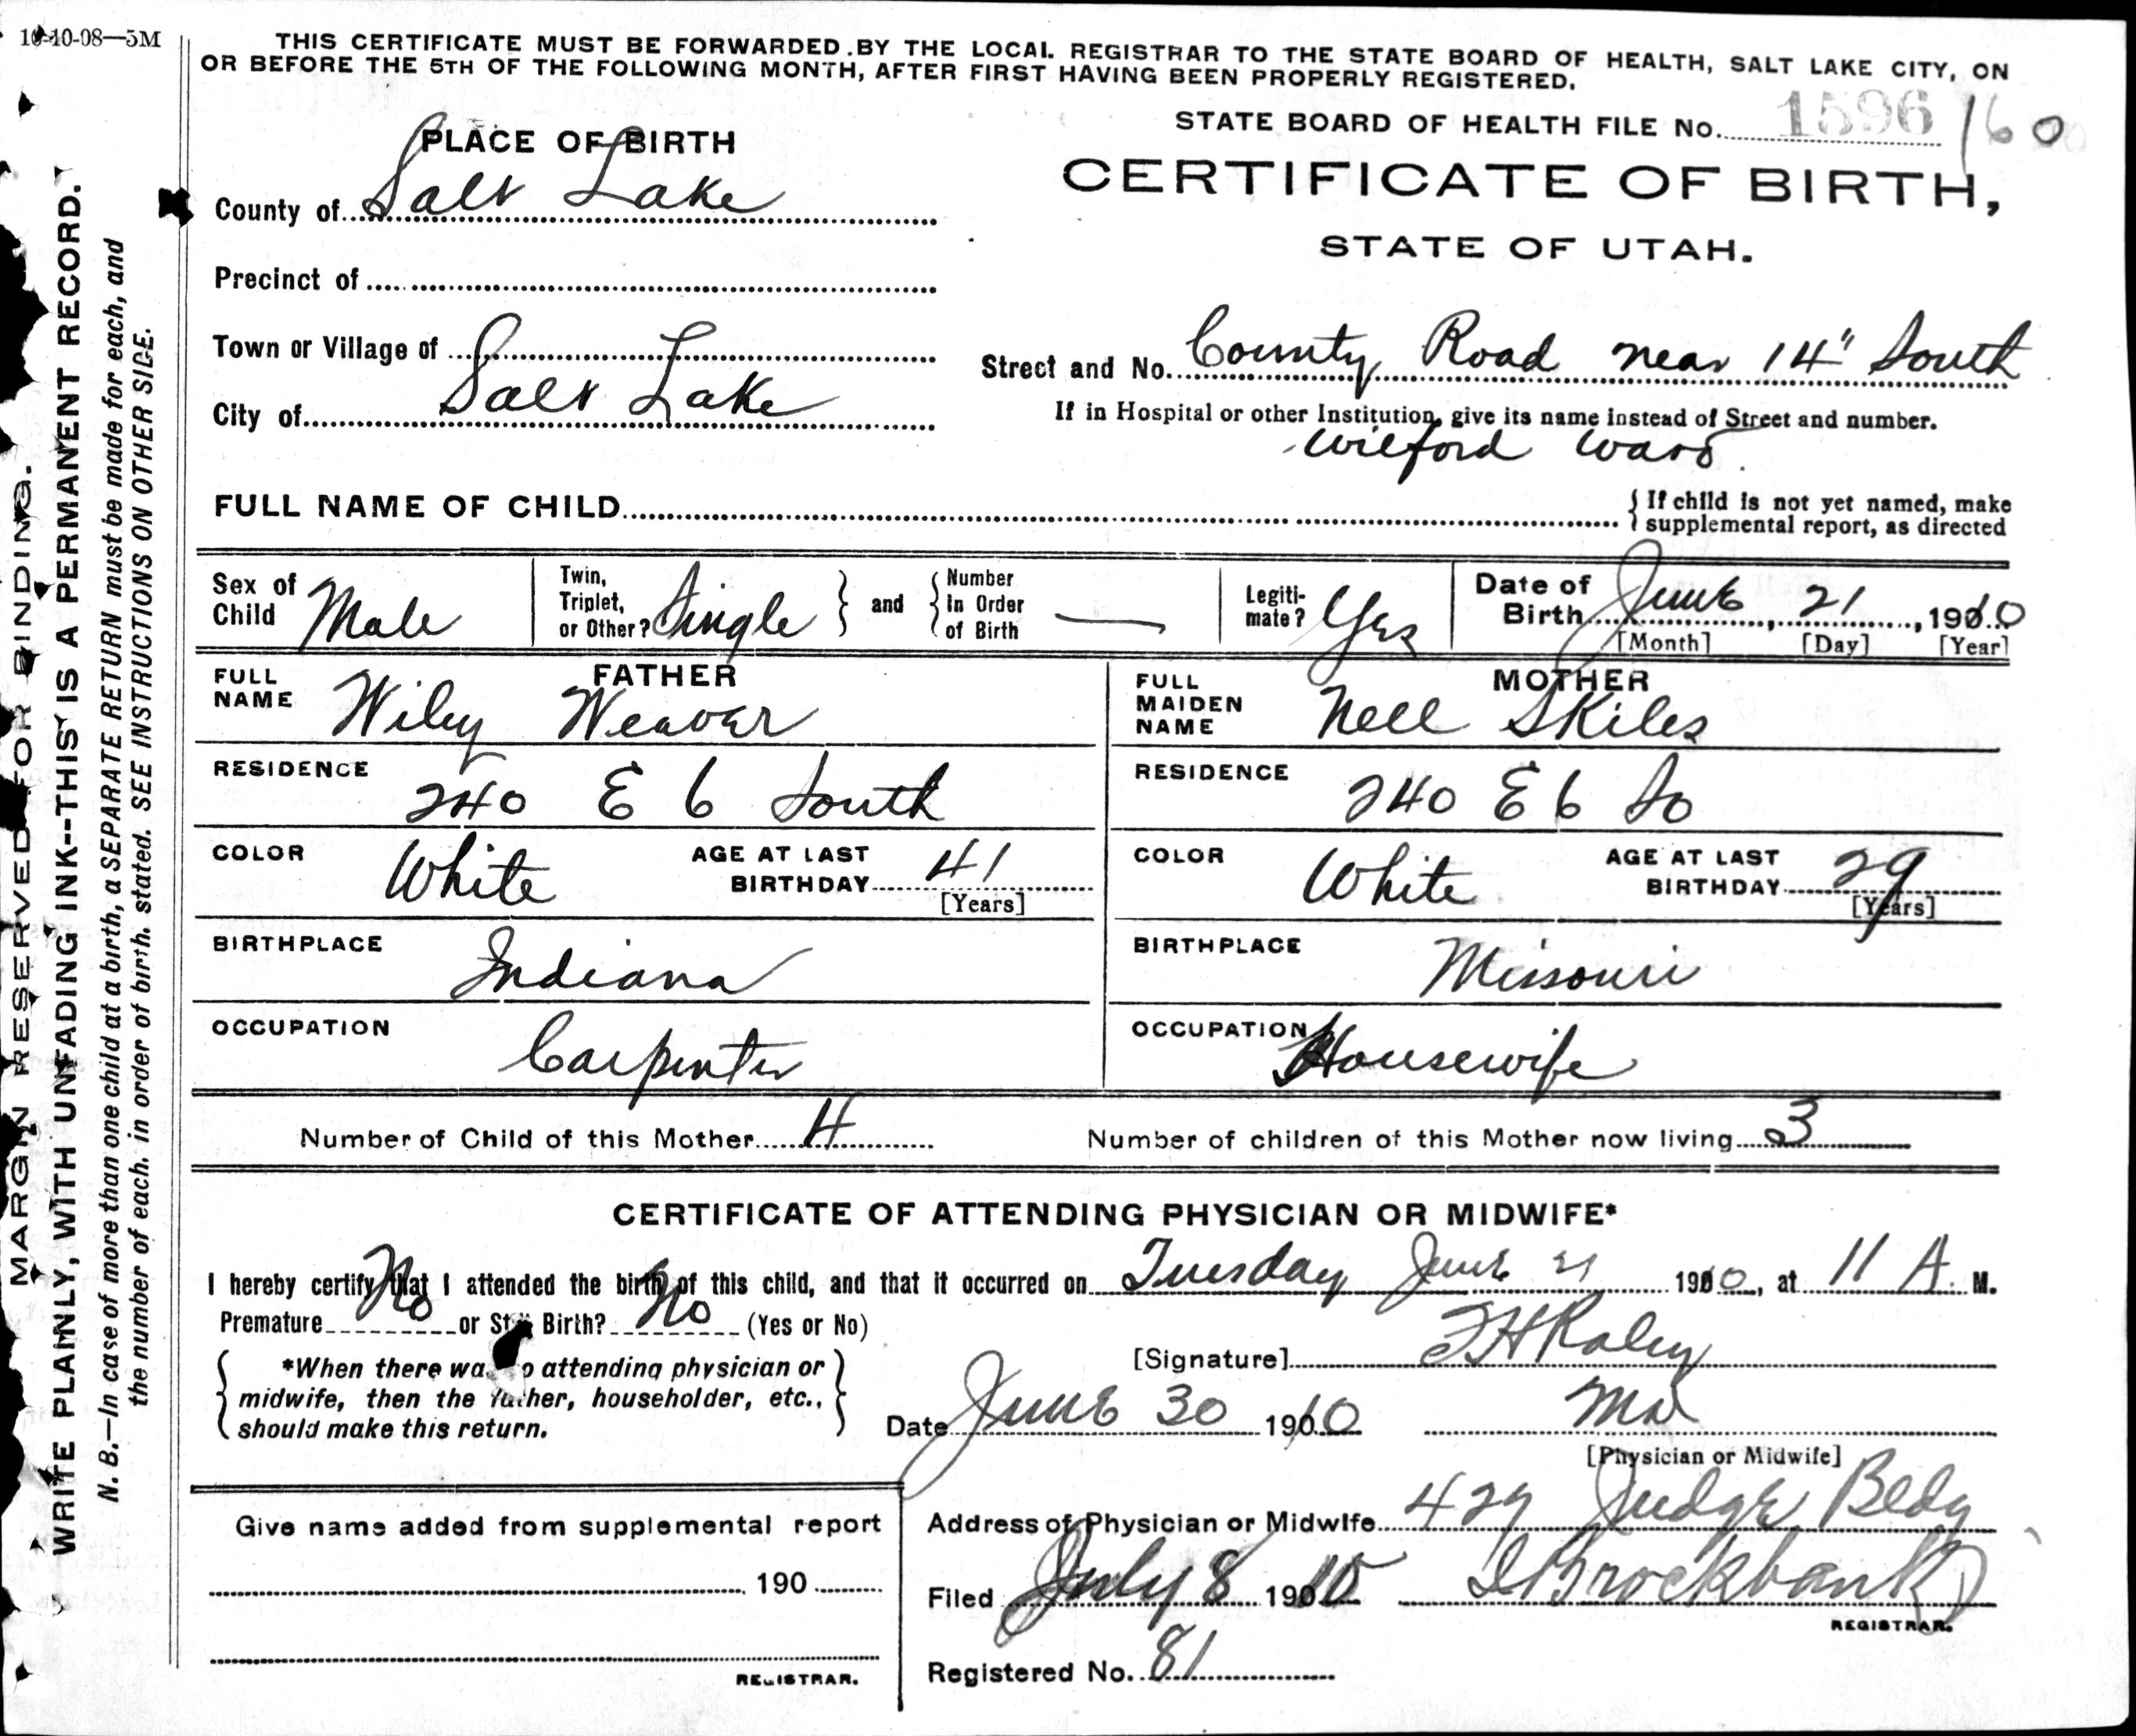 10-10-08—5M
THIS CERTIFICATE MUST BE FORWARDED BY THE LOCAL REGISTRAR TO THE STATE BOARD OF HEALTH, SALT LAKE CITY, ON
OR BEFORE THE 5TH OF THE FOLLOWING MONTH, AFTER FIRST HAVING BEEN PROPERLY REGISTERED.
STATE BOARD OF HEALTH FILE No. 1596 160
PLACE OF BIRTH
CERTIFICATE OF BIRTH,
STATE OF UTAH.
County of Salt Lake
Precinct of
Town or Village of
City of Salt Lake
Street and No. County Road near 14" South
If in Hospital or other Institution, give its name instead of Street and number.
Wilford Ward
FULL NAME OF CHILD
{ If child is not yet named, make
supplemental report, as directed
Sex of Child Male
Twin, Triplet, or Other? Single } and { Number in Order of Birth —
Legiti-mate? Yes
Date of Birth June 21, 1910
[Month] [Day] [Year]
FATHER
FULL NAME Wiley Weaver
RESIDENCE 240 E 6 South
COLOR White AGE AT LAST BIRTHDAY 41
[Years]
BIRTHPLACE Indiana
OCCUPATION Carpenter
MOTHER
FULL MAIDEN NAME Nell Skiles
RESIDENCE 240 E 6 So
COLOR White AGE AT LAST BIRTHDAY 29
[Years]
BIRTHPLACE Missouri
OCCUPATION Housewife
Number of Child of this Mother 4 Number of children of this Mother now living 3
CERTIFICATE OF ATTENDING PHYSICIAN OR MIDWIFE*
I hereby certify that I attended the birth of this child, and that it occurred on Tuesday June 21 1910, at 11 A. M.
Premature No or Still Birth? No (Yes or No)
{ *When there was no attending physician or
midwife, then the father, householder, etc.,
should make this return. }
[Signature] FH Raley
Date June 30 1910 Md
[Physician or Midwife]
Address of Physician or Midwife 429 Judge Bldg
Filed July 8 1910 Brockbank
REGISTRAR.
Registered No. 81
Give name added from supplemental report
190
REGISTRAR.
MARGIN RESERVED FOR BINDING.
WRITE PLAINLY, WITH UNFADING INK--THIS IS A PERMANENT RECORD.
N. B.—In case of more than one child at a birth, a SEPARATE RETURN must be made for each, and
the number of each, in order of birth, stated. SEE INSTRUCTIONS ON OTHER SIDE.